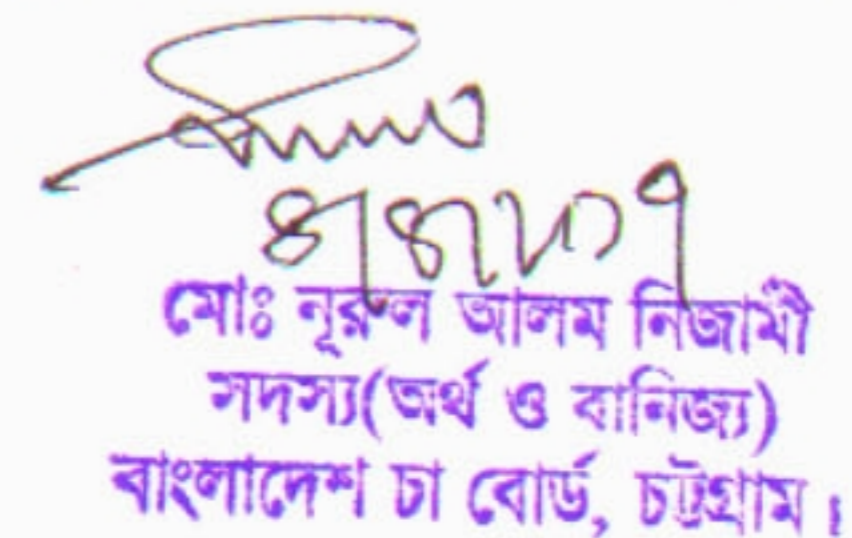 মোঃ নূরুল আলম নিজামী
সদস্য(অর্থ ও বানিজ্য)
বাংলাদেশ চা বোর্ড, চট্টগ্রাম।